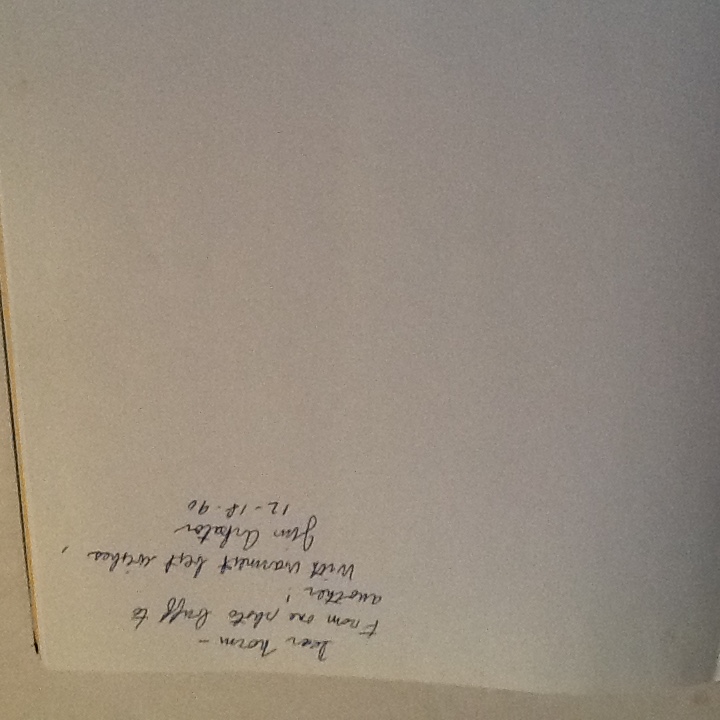 Dear Norm -
From one photo buff to
another!
With warmest best wishes,
Jim
12-18-90